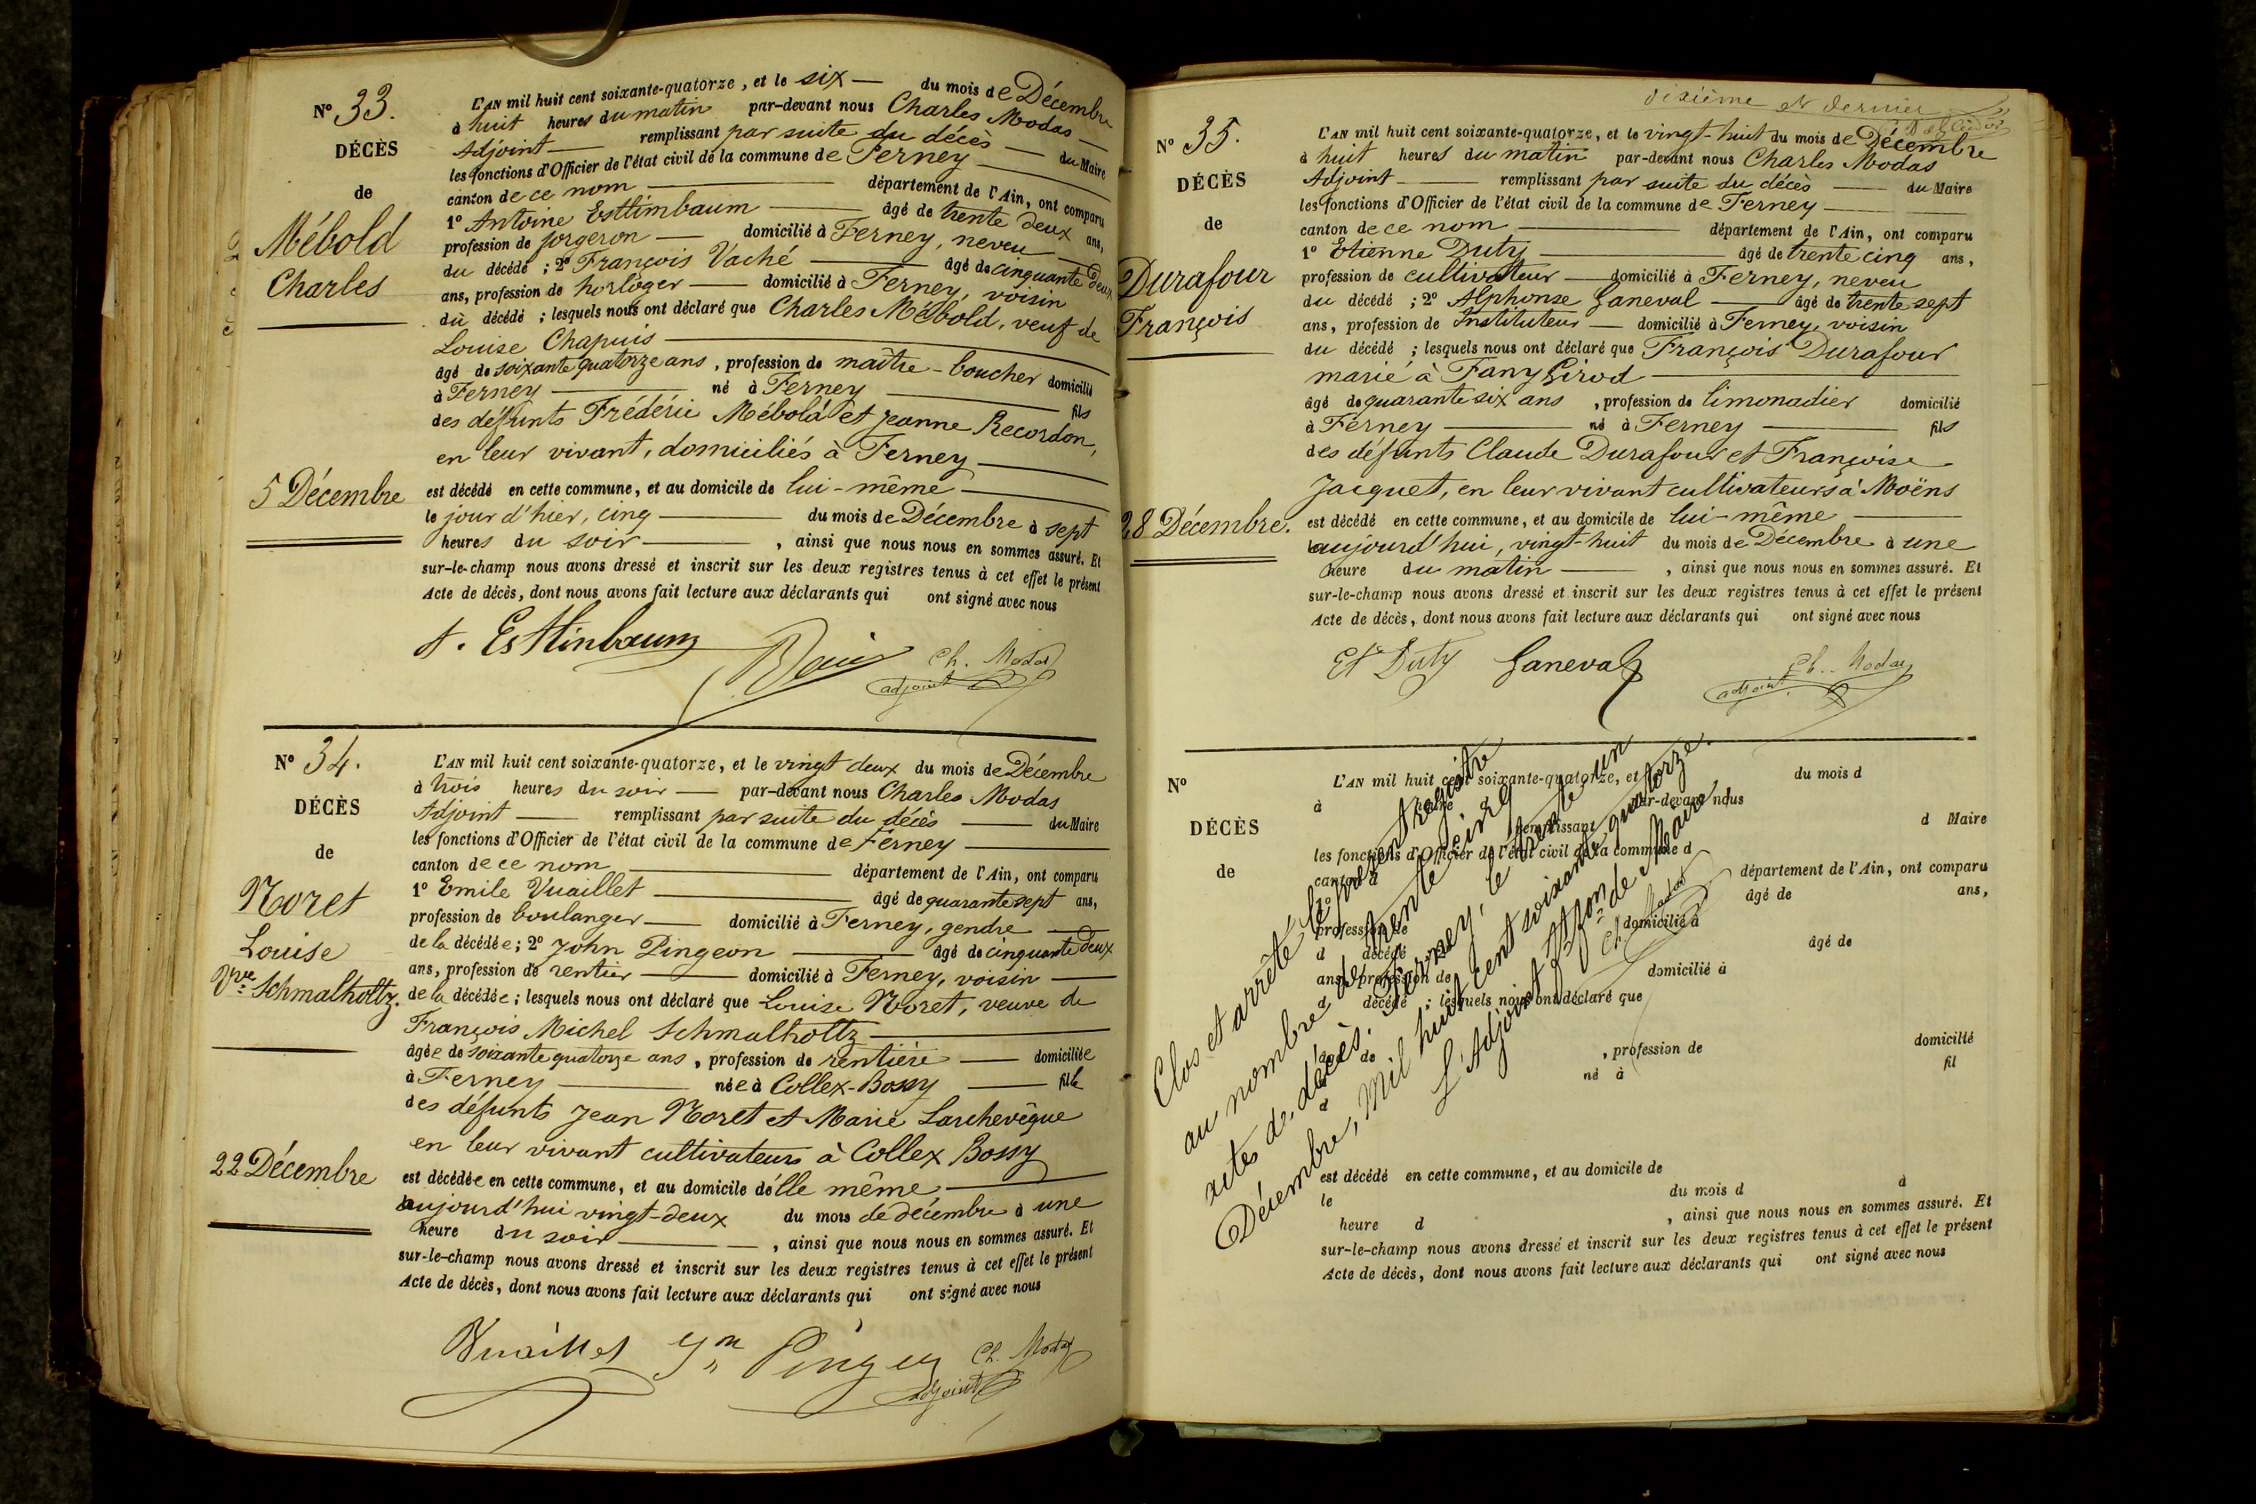 N° 33.
DÉCÈS
de
Mébold
Charles
5 Décembre
L'AN mil huit cent soixante-quatorze, et le six — du mois de Décembre
à huit heures du matin par-devant nous Charles Modas —
Adjoint — remplissant par suite du décès — du Maire
les fonctions d'Officier de l'état civil de la commune de Ferney —
canton de ce nom — département de l'Ain, ont comparu
1° Antoine Esttimbaum — âgé de trente deux ans,
profession de forgeron — domicilié à Ferney, neveu —
du décédé ; 2° François Vaché — âgé de cinquante deux
ans, profession de horloger — domicilié à Ferney, voisin
du décédé ; lesquels nous ont déclaré que Charles Mébold, veuf de
Louise Chapuis —
âgé de soixante quatorze ans, profession de maître-boucher domicilié
à Ferney — né à Ferney — fils
des défunts Frédéric Mébold et Jeanne Recordon,
en leur vivant, domiciliés à Ferney —
est décédé en cette commune, et au domicile de lui-même —
le jour d'hier, cinq — du mois de Décembre à sept
heures du soir —, ainsi que nous nous en sommes assuré. Et
sur-le-champ nous avons dressé et inscrit sur les deux registres tenus à cet effet le présent
Acte de décès, dont nous avons fait lecture aux déclarants qui ont signé avec nous
A. Esttinbaum Ch. Modas
adjoint
N° 34.
DÉCÈS
de
Noret
Louise
Vve Schmalholtz.
22 Décembre
L'AN mil huit cent soixante-quatorze, et le vingt deux du mois de Décembre
à trois heures du soir — par-devant nous Charles Modas
Adjoint — remplissant par suite du décès — du Maire
les fonctions d'Officier de l'état civil de la commune de Ferney —
canton de ce nom — département de l'Ain, ont comparu
1° Emile Vuaillet — âgé de quarante sept ans,
profession de boulanger — domicilié à Ferney, gendre —
de la décédée ; 2° John Pingeon — âgé de cinquante deux
ans, profession de rentier — domicilié à Ferney, voisin —
de la décédée ; lesquels nous ont déclaré que Louise Noret, veuve de
François Michel Schmalholtz —
âgée de soixante quatorze ans, profession de rentière — domiciliée
à Ferney — née à Collex-Bossy — fille
des défunts Jean Noret et Marie Larchevêque
en leur vivant cultivateurs à Collex Bossy
est décédée en cette commune, et au domicile d'elle même —
aujourd'hui vingt-deux du mois de décembre à une
heure du soir —, ainsi que nous nous en sommes assuré. Et
sur-le-champ nous avons dressé et inscrit sur les deux registres tenus à cet effet le présent
Acte de décès, dont nous avons fait lecture aux déclarants qui ont signé avec nous
Vuaillet Jn Pingeon Ch. Modas
adjoint
dixième et dernier
N° 35.
DÉCÈS
de
Durafour
François
28 Décembre.
L'AN mil huit cent soixante-quatorze, et le vingt-huit du mois de Décembre
à huit heures du matin par-devant nous Charles Modas
Adjoint — remplissant par suite du décès — du Maire
les fonctions d'Officier de l'état civil de la commune de Ferney —
canton de ce nom — département de l'Ain, ont comparu
1° Etienne Duty — âgé de trente cinq ans,
profession de cultivateur — domicilié à Ferney, neveu
du décédé ; 2° Alphonse Ganeval — âgé de trente sept
ans, profession de Instituteur — domicilié à Ferney, voisin
du décédé ; lesquels nous ont déclaré que François Durafour
marié à Fany Girod —
âgé de quarante six ans, profession de limonadier domicilié
à Ferney — né à Ferney — fils
des défunts Claude Durafour et Françoise
Jacquet, en leur vivant cultivateurs à Moëns
est décédé en cette commune, et au domicile de lui-même —
aujourd'hui, vingt-huit du mois de Décembre à une
heure du matin —, ainsi que nous nous en sommes assuré. Et
sur-le-champ nous avons dressé et inscrit sur les deux registres tenus à cet effet le présent
Acte de décès, dont nous avons fait lecture aux déclarants qui ont signé avec nous
Et. Duty Ganeval Ch. Modas
adjoint
N°
DÉCÈS
de
L'AN mil huit cent soixante-quatorze, et du mois d
à heure d par-devant nous
remplissant d Maire
les fonctions d'Officier de l'état civil de la commune d
canton d département de l'Ain, ont comparu
1° âgé de ans,
profession de domicilié à
d décédé âgé de
ans, profession de domicilié à
d décédé ; lesquels nous ont déclaré que
âgé de , profession de domicilié
à né à fil
d
est décédé en cette commune, et au domicile de d
le du mois d
heure d , ainsi que nous nous en sommes assuré. Et
sur-le-champ nous avons dressé et inscrit sur les deux registres tenus à cet effet le présent
Acte de décès, dont nous avons fait lecture aux déclarants qui ont signé avec nous
Clos et arrêté le présent registre
au nombre de trente cinq
actes de décès. Ferney, le trente un
Décembre, Mil huit cent soixante quatorze.
L'Adjoint ff.on de Maire,
Ch. Modas